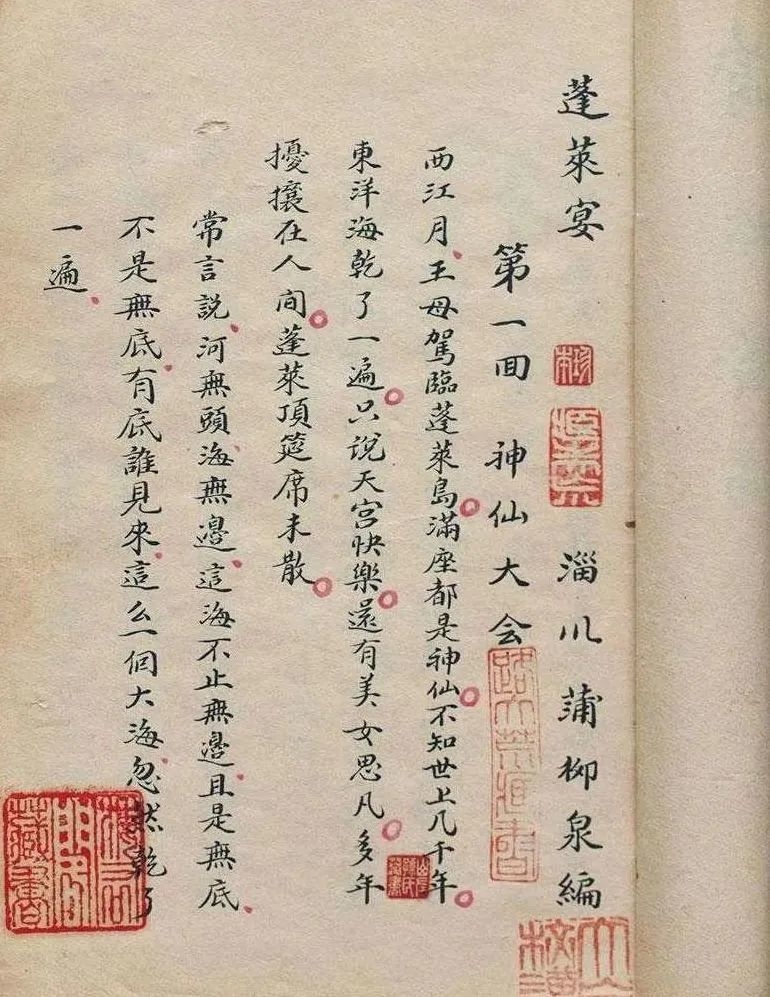 蓬萊宴 淄川蒲柳泉編
第一回 神仙大会
西江月、王母駕臨蓬萊島滿座都是神仙不知世上几千年
東洋海乾了一遍只說天宮快樂還有美女思凡多年
擾攘在人間蓬萊頂筵席未散
常言說、河無頭、海無邊、這海不止無邊、且是無底、
不是無底、有底誰見來、這么一個大海、忽然乾了
一遍、
路大荒海書